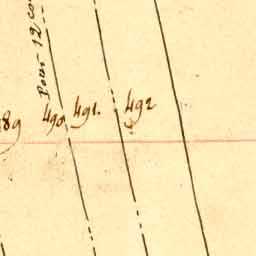 Pour 12 co
89 490 491. 492